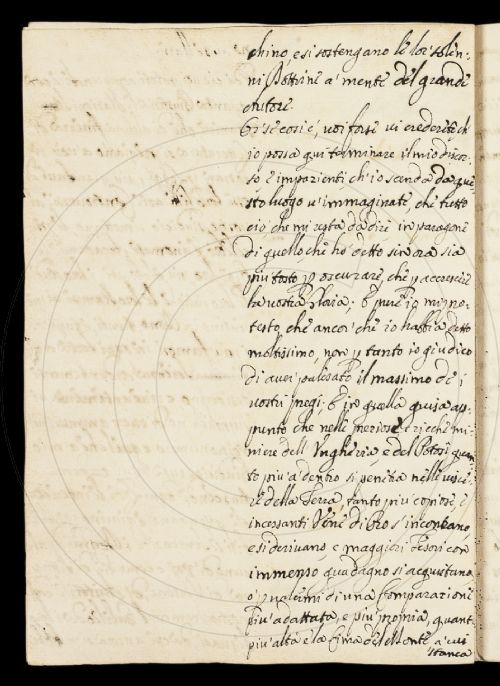 chino, e si sostengano le lor' solen-
ni Dottrine a' mente del grande
Autore.
Or se così è, voi forse vi crederete ch'
io possa qui terminare il mio discor-
so, e impazienti, ch'io scenda da que
sto luogo v'immaginate, che tutto
ciò, che mi resta da dire in paragone
di quello che ho detto sin ora sia
più tosto p oscurare, che p accrescere
la vostra Gloria; E pure io mi pro-
testo, che ancor' che io habbia detto
moltissimo, non p tanto io giudico
di aver palesato il massimo de i
vostri pregi; E in quella guisa ap-
punto che nelle preziose, e ricche mi-
niere dell' Ungheria, e del Potosi quan
to più a' dentro si penetra nelle visce-
re della Terra, tanto più copiose, e
incessanti Vene di Oro s'incontrano,
e si derivano, e maggieri Tesori con
immenso guadagno si acquistano
o' valermi di una Comparazione
più adattata, e più propria, quant
più alta è la Cima del Monte a' cui
stanca